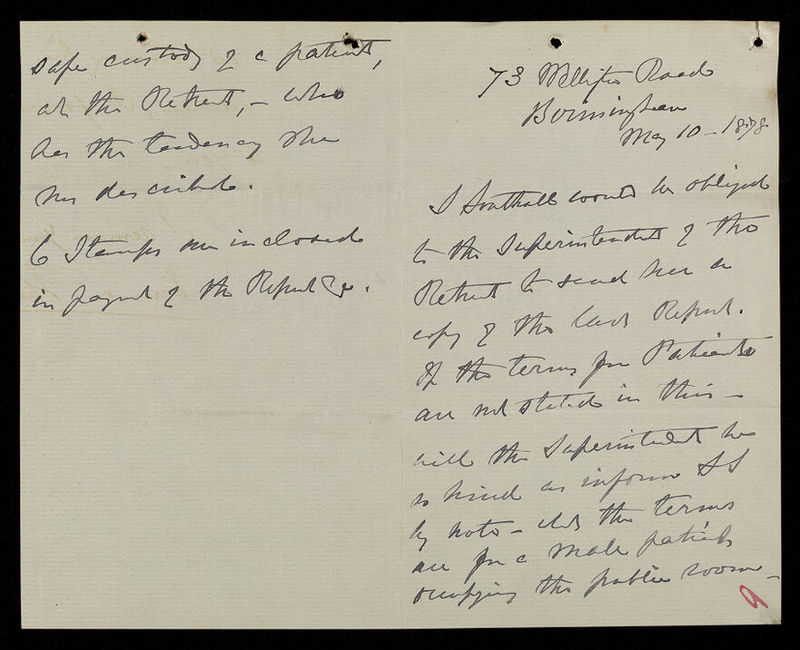 73 Wellington Road
Birmingham
May 10 - 1878
S Southall would be obliged
to the Superintendent of the
Retreat to send her a
copy of the last Report.
If the terms for Patients
are not stated in this -
will the Superintendent be
so kind as inform SS
by note - what the terms
are for a male patient
occupying the public room -
9
safe custody of a patient,
at the Retreat, - who
has the tendency she
has described.
6 Stamps are inclosed
in payment of the Report &c.